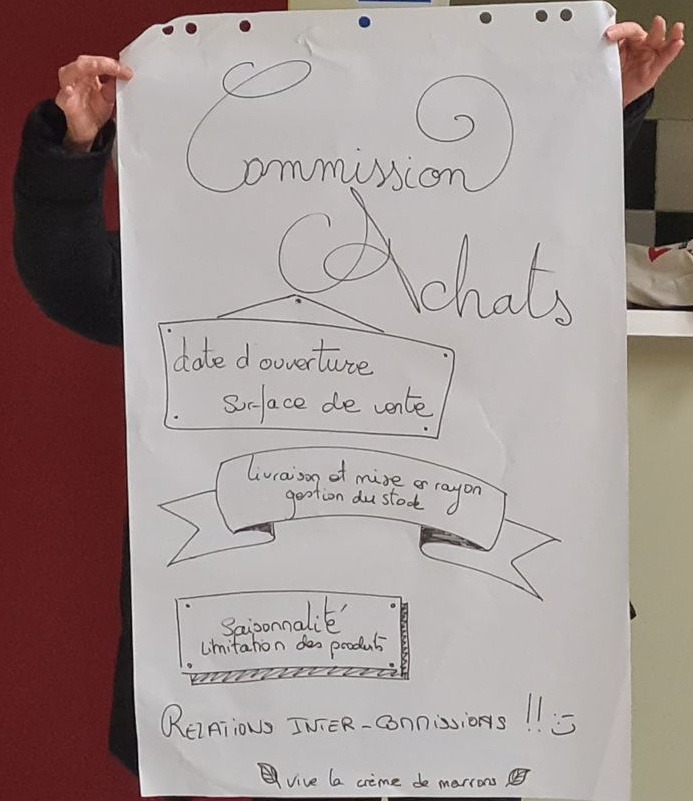 Commission
Achats
date d'ouverture
surface de vente
livraison et mise en rayon
gestion du stock
saisonnalité
limitation des produits
RELATIONS INTER-COMMISSIONS !! :)
vive la crème de marrons